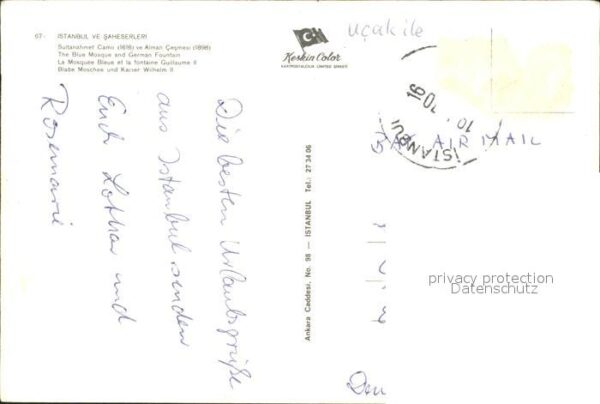 67 - İSTANBUL VE ŞAHESERLERİ
Sultanahmet Camii (1616) ve Alman Çeşmesi (1898)
The Blue Mosque and German Fountain
La Mosquée Bleue et la fontaine Guillaume II
Blabe Moschee und Kaiser Wilhelm II
Keskin Color
KARTPOSTALCILIK LIMITED ŞİRKETİ
uçak ile
İSTANBUL
10.
16
AIR MAIL
Die besten Urlaubsgrüße
aus Istanbul senden
Euch Lothar und
Rosemarie
Ankara Caddesi, No. 98 — İSTANBUL Tel.: 27 34 06
privacy protection
Datenschutz